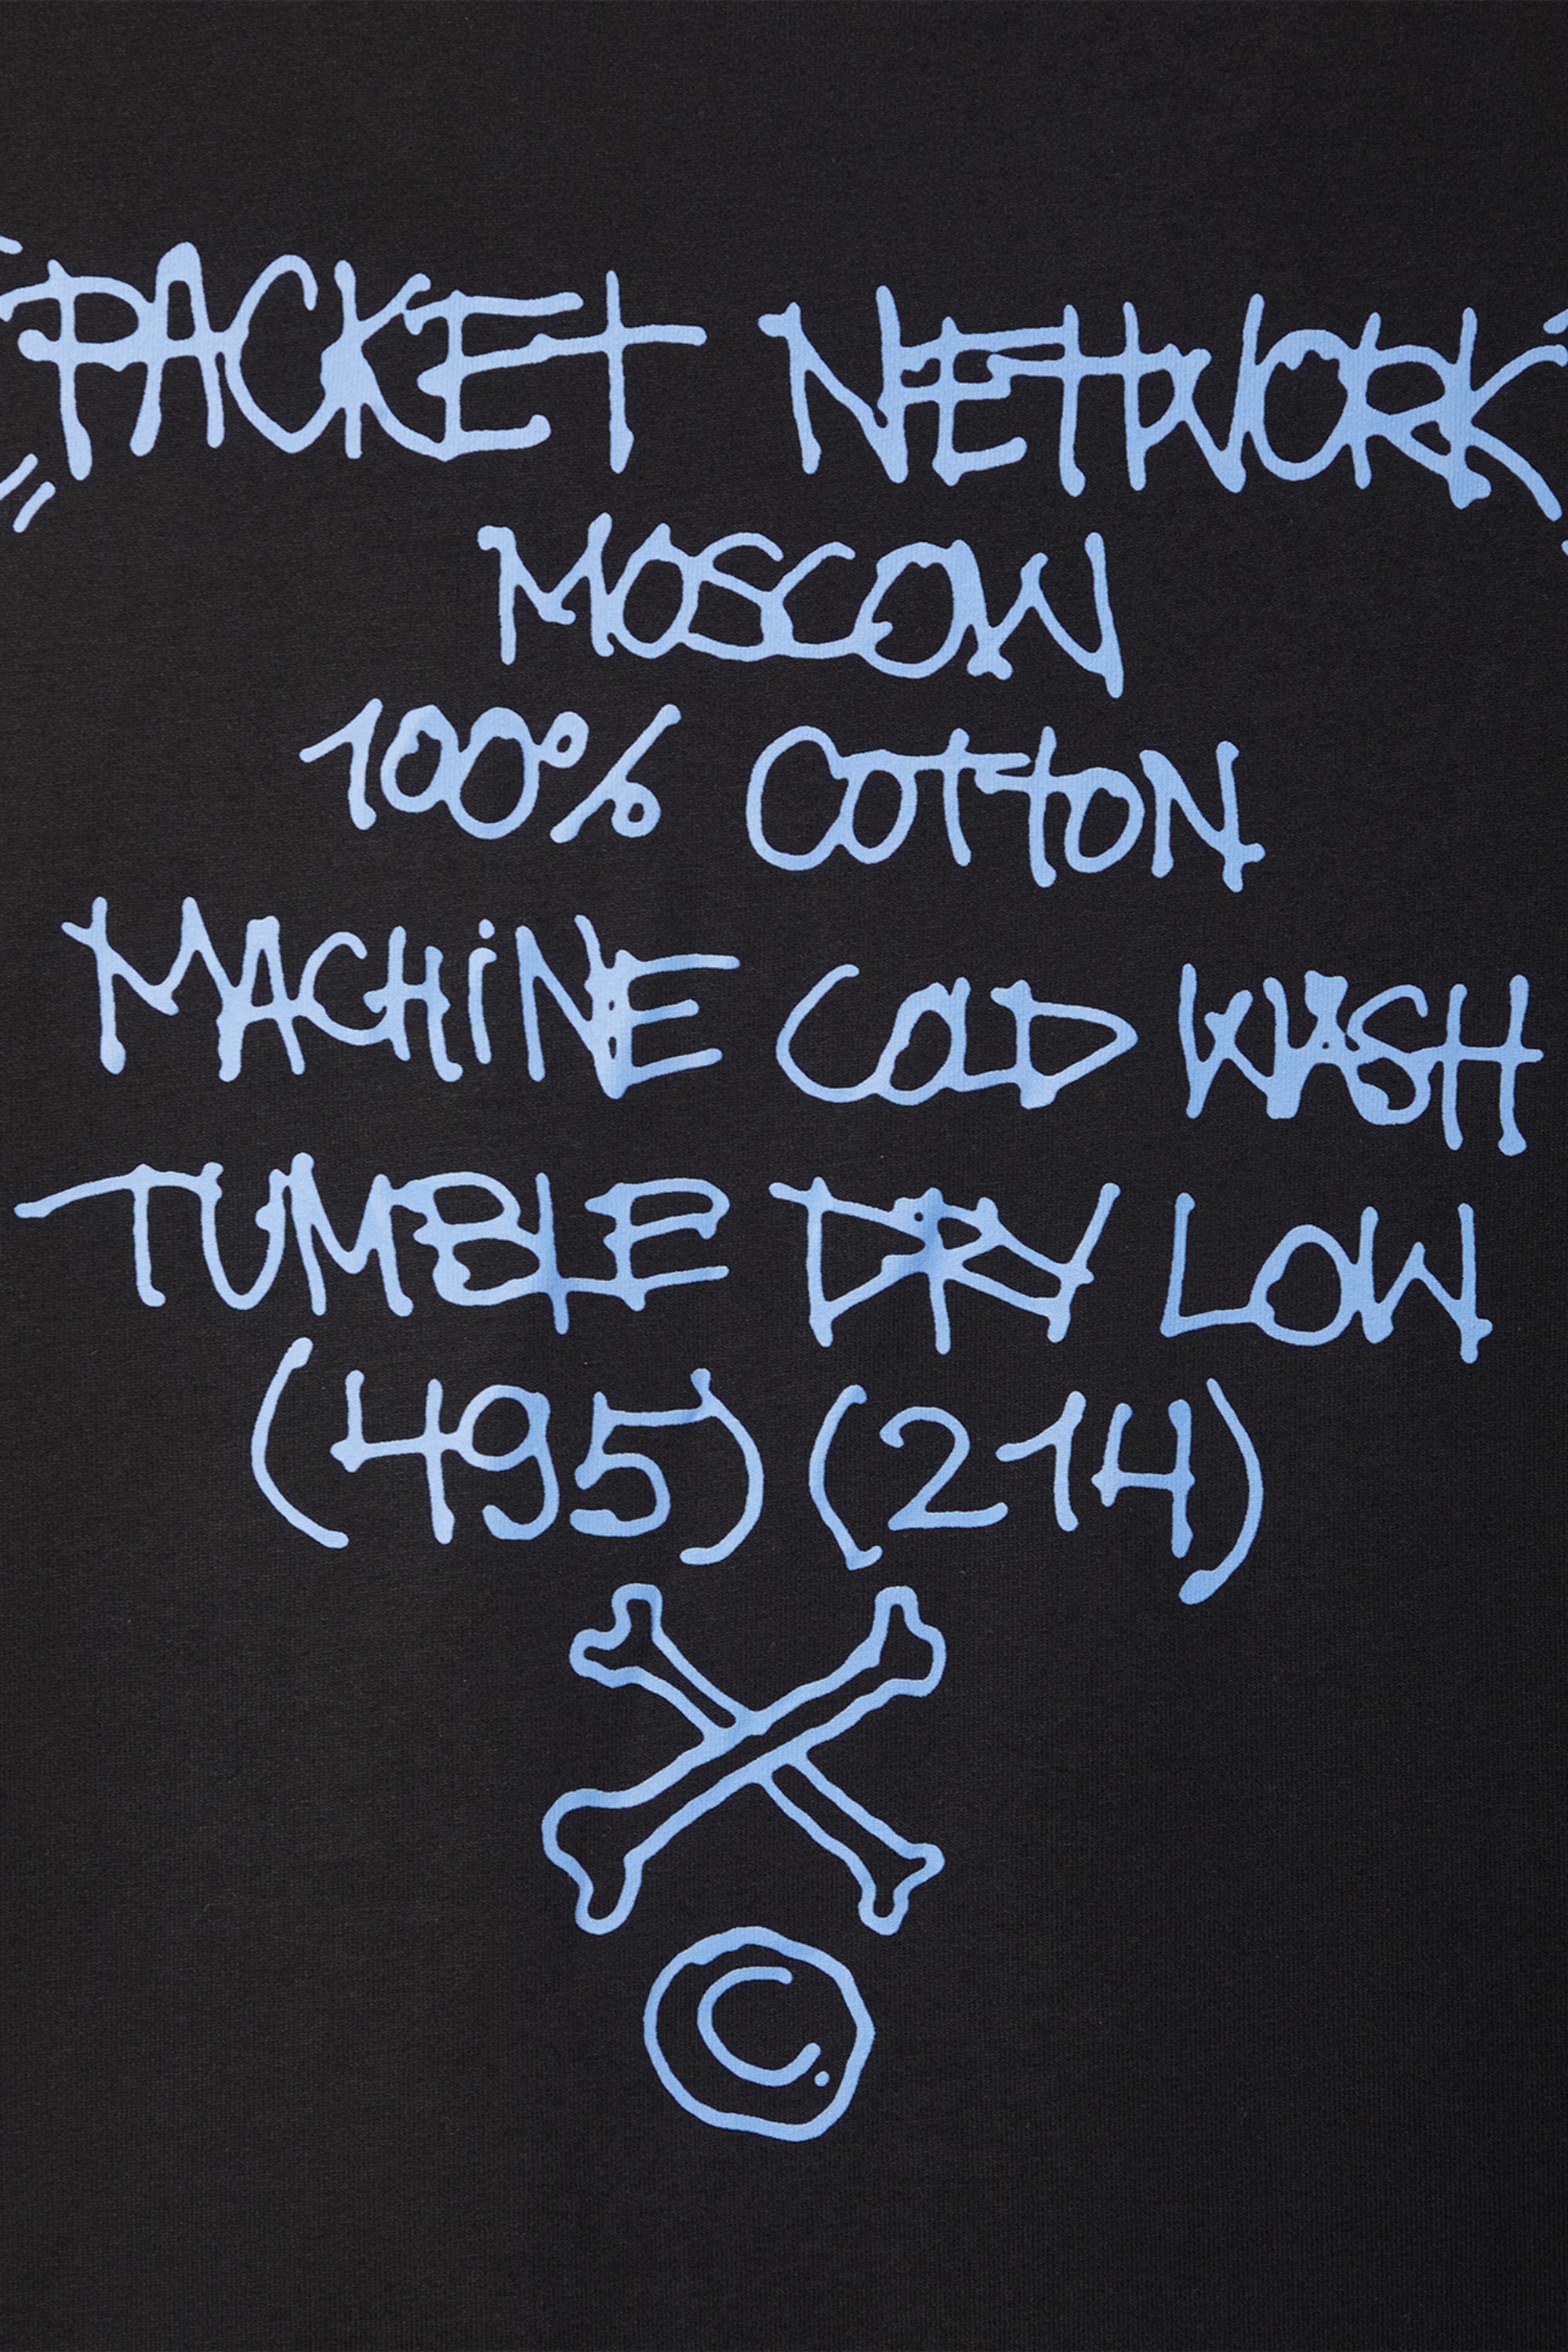 "PACKET NETWORK"
MOSCOW
100% COTTON
MACHiNE COLD WASH
TUMBLE DRY LOW
(495)(214)
©